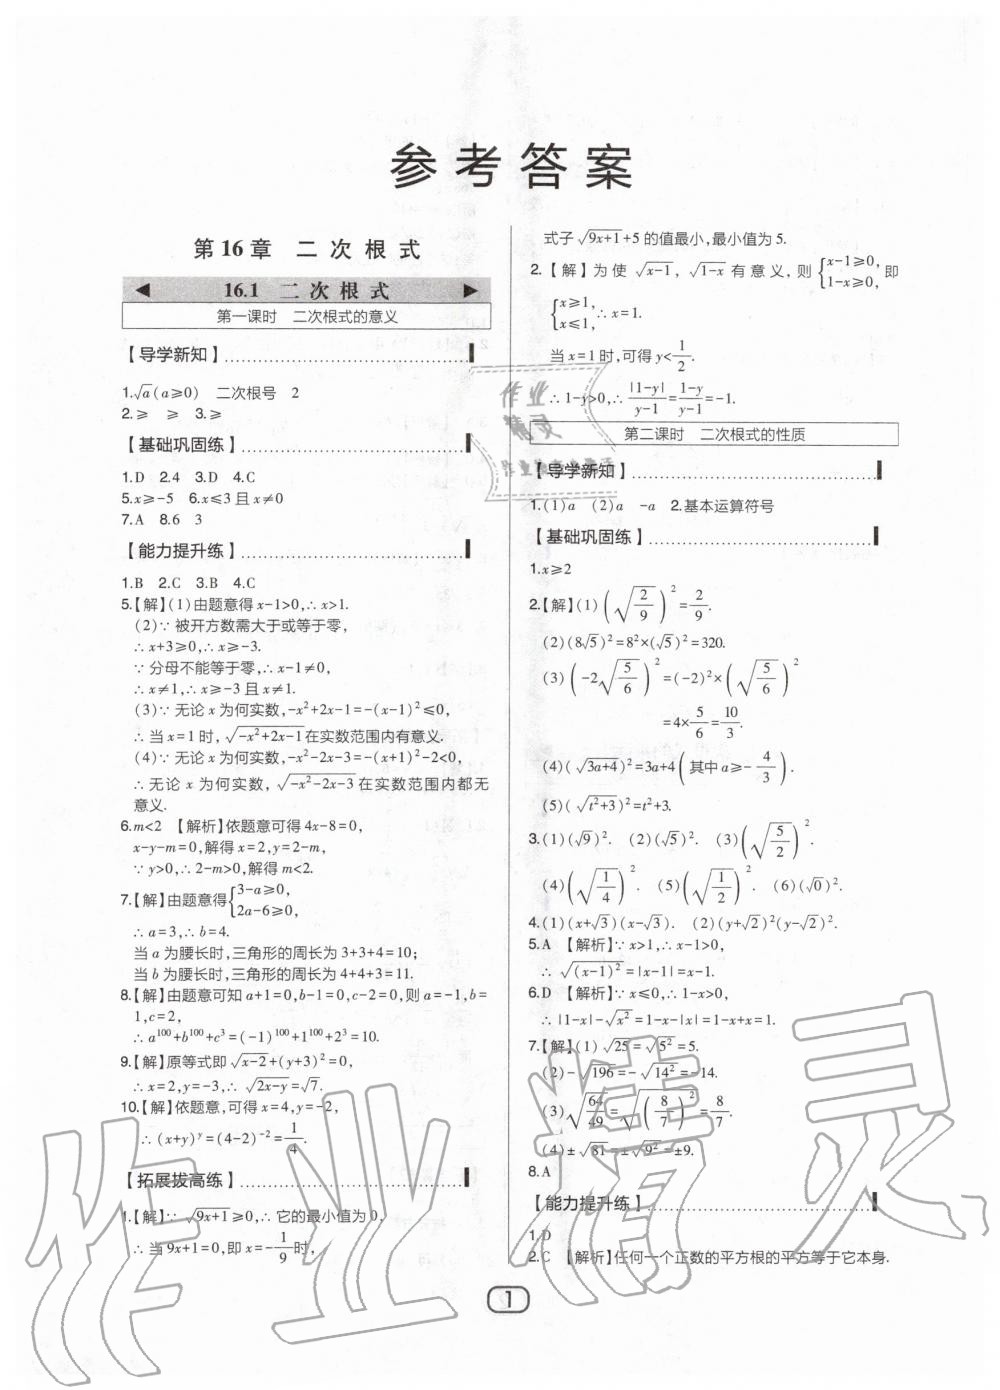 参考答案
第16章 二次根式
◀ 16.1 二次根式 ▶
第一课时 二次根式的意义
【导学新知】
1.√a(a≥0) 二次根号 2
2.≥ ≥ 3.≥
【基础巩固练】
1.D 2.4 3.D 4.C
5.x≥-5 6.x≤3且x≠0
7.A 8.6 3
【能力提升练】
1.B 2.C 3.B 4.C
5.【解】(1)由题意得x-1>0,∴x>1.
(2)∵被开方数需大于或等于零,
∴x+3≥0,∴x≥-3.
∵分母不能等于零,∴x-1≠0,
∴x≠1,∴x≥-3且x≠1.
(3)∵无论x为何实数,-x²+2x-1=-(x-1)²≤0,
∴当x=1时,√(-x²+2x-1)在实数范围内有意义.
(4)∵无论x为何实数,-x²-2x-3=-(x+1)²-2<0,
∴无论x为何实数,√(-x²-2x-3)在实数范围内都无
意义.
6.m<2 【解析】依题意可得4x-8=0,
x-y-m=0,解得x=2,y=2-m,
∵y>0,∴2-m>0,解得m<2.
7.【解】由题意得{3-a≥0,
2a-6≥0,
∴a=3,∴b=4.
当a为腰长时,三角形的周长为3+3+4=10;
当b为腰长时,三角形的周长为4+4+3=11.
8.【解】由题意可知a+1=0,b-1=0,c-2=0,则a=-1,b=
1,c=2,
∴a¹⁰⁰+b¹⁰⁰+c³=(-1)¹⁰⁰+1¹⁰⁰+2³=10.
9.【解】原等式即√(x-2)+(y+3)²=0,
∴x=2,y=-3,∴√(2x-y)=√7.
10.【解】依题意,可得x=4,y=-2,
∴(x+y)ʸ=(4-2)⁻²=1/4.
【拓展拔高练】
1.【解】∵√(9x+1)≥0,∴它的最小值为0,
∴当9x+1=0,即x=-1/9时,
式子√(9x+1)+5的值最小,最小值为5.
2.【解】为使√(x-1),√(1-x)有意义,则{x-1≥0,
1-x≥0, 即
{x≥1,
x≤1, ∴x=1.
当x=1时,可得y<1/2.
∴1-y>0,∴|1-y|/(y-1)=(1-y)/(y-1)=-1.
第二课时 二次根式的性质
【导学新知】
1.(1)a (2)a -a 2.基本运算符号
【基础巩固练】
1.x≥2
2.【解】(1)(√(2/9))²=2/9.
(2)(8√5)²=8²×(√5)²=320.
(3)(-2√(5/6))²=(-2)²×(√(5/6))²
=4×5/6=10/3.
(4)(√(3a+4))²=3a+4(其中a≥-4/3).
(5)(√(t²+3))²=t²+3.
3.(1)(√9)². (2)(√5)². (3)(√(5/2))².
(4)(√(1/4))². (5)(√(1/2))². (6)(√0)².
4.(1)(x+√3)(x-√3). (2)(y+√2)²(y-√2)².
5.A 【解析】∵x>1,∴x-1>0,
∴√((x-1)²)=|x-1|=x-1.
6.D 【解析】∵x≤0,∴1-x>0,
∴|1-x|-√(x²)=1-x-|x|=1-x+x=1.
7.【解】(1)√25=√(5²)=5.
(2)-√196=-√(14²)=-14.
(3)√(64/49)=√((8/7)²)=8/7.
(4)±√81=±√(9²)=±9.
8.A
【能力提升练】
1.D
2.C 【解析】任何一个正数的平方根的平方等于它本身.
1
作业精灵